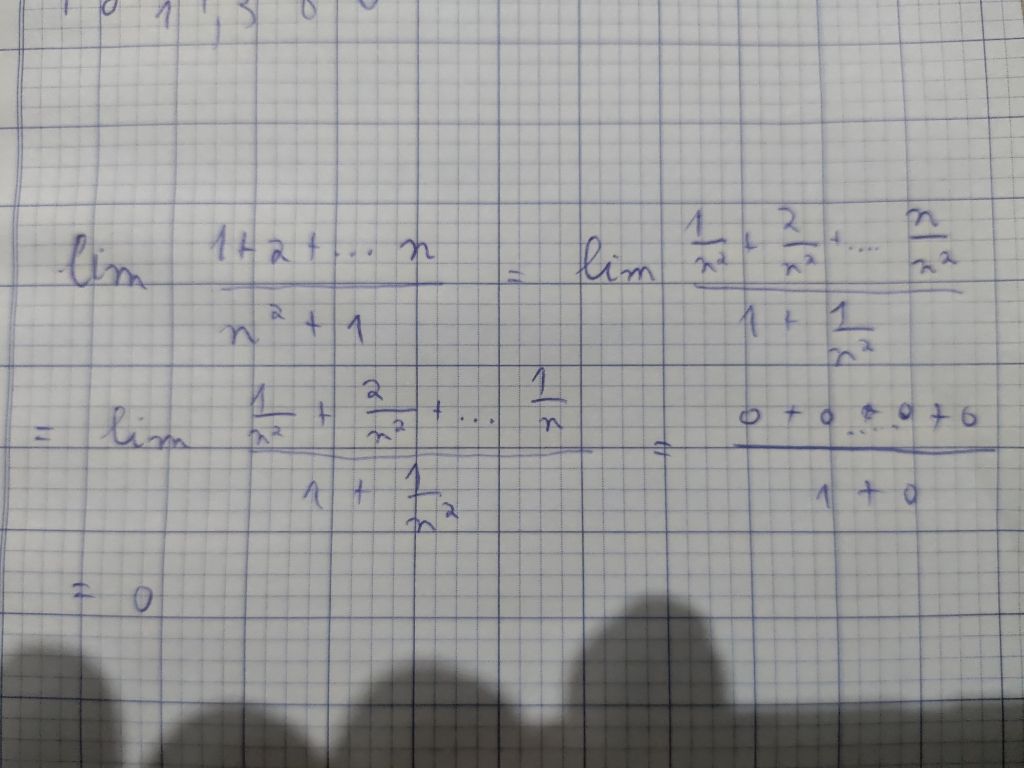 lim (1+2+... n)/(n²+1) = lim (1/n² + 2/n² + .... n/n²)/(1 + 1/n²)
= lim (1/n² + 2/n² + ... 1/n)/(1 + 1/n²) = (0 + 0 + .... 0 + 0)/(1 + 0)
= 0